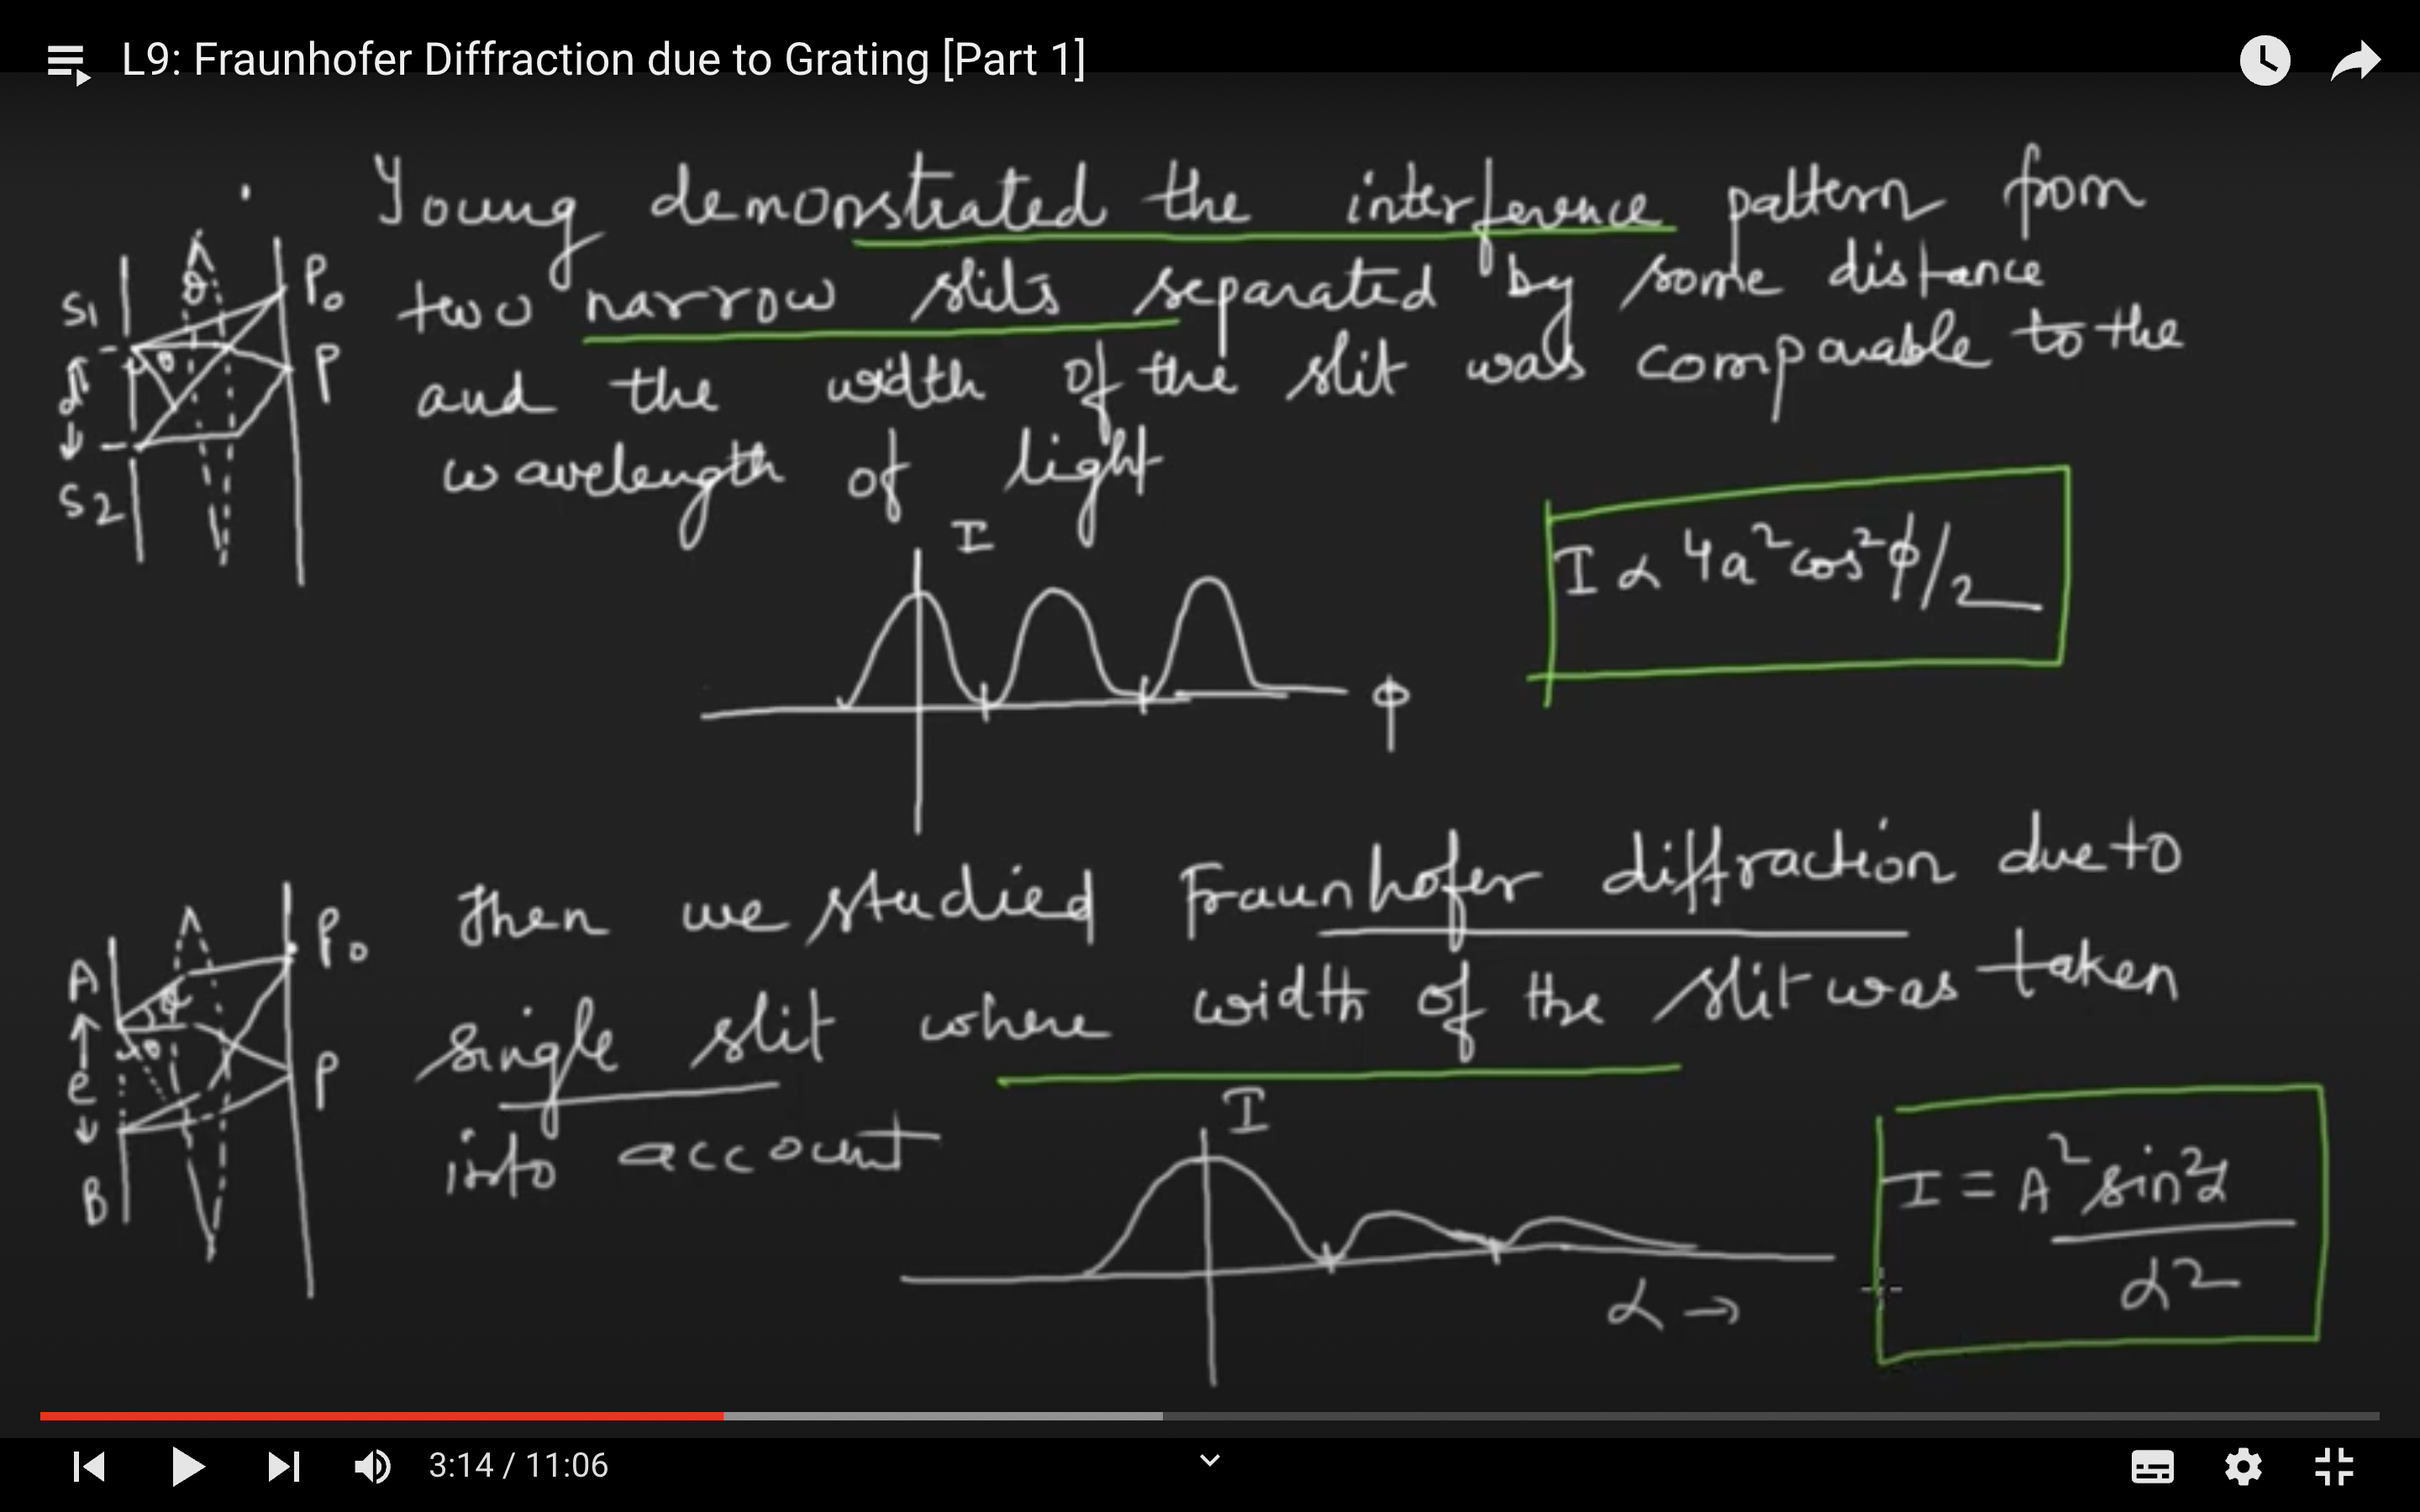 L9: Fraunhofer Diffraction due to Grating [Part 1]
Young demonstrated the interference pattern from
two narrow slits separated by some distance
and the width of the slit was comparable to the
wavelength of light
S1
d
S2
θ
θ
P0
P
I
ϕ
I α 4a²cos²ϕ/2
Then we studied Fraunhofer diffraction due to
single slit where width of the slit was taken
into account
A
e
B
θ
P0
P
I
α →
I = A² sin²α
α²
3:14 / 11:06